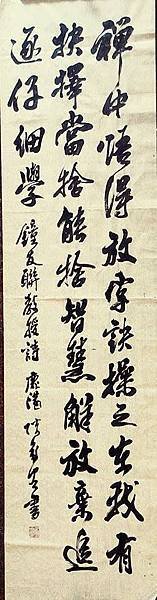 禪中悟得放字訣操之在我有
抉擇當捨能捨智慧解放棄追
逐仔細學
鐘友聯教授詩 書